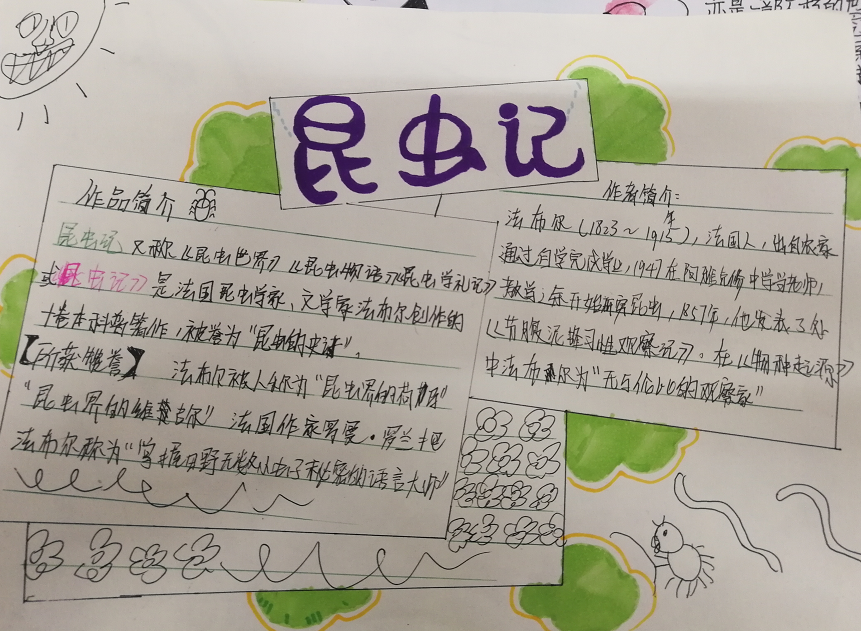 昆虫记
作品简介
昆虫记 又称《昆虫世界》《昆虫物语》《昆虫学札记》
或《昆虫记》是法国昆虫学家、文学家法布尔创作的
十卷本科普著作，被誉为“昆虫的史诗”。
【所获雅誉】 法布尔被人称为“昆虫界的荷马”
“昆虫界的维吉尔” 法国作家罗曼·罗兰把
法布尔称为“掌握田野无数小虫子秘密的语言大师”
作者简介：
法布尔（1823～1915年），法国人，出自农家
通过自学完成学业，194 在阿雅克修中学当老师，
教学；年开始研究昆虫，1857年，他发表了处
《节腹泥蜂习性观察记》。在《物种起源》
中法布尔为“无与伦比的观察家”